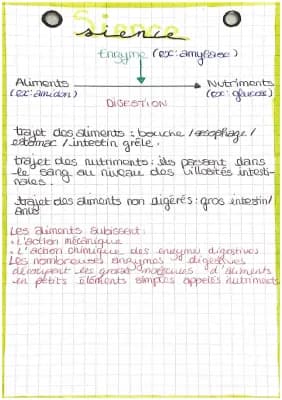 Sience
Enzyme (ex: amylase)
Aliments Nutriments
(ex: amidon) (ex: glucose)
DIGESTION
trajet des aliments : bouche / œsophage /
estomac / intestin grêle.
trajet des nutriments : ils passent dans
le sang au niveau des villosités intesti-
nales.
trajet des aliments non digérés : gros intestin/
anus
Les aliments subissent:
• L'action mécanique
• L'action chimique des enzymes digestives
Les nombreuses enzymes digestives
découpent les grosses molécules d'aliments
en petits éléments simples appelés nutriments